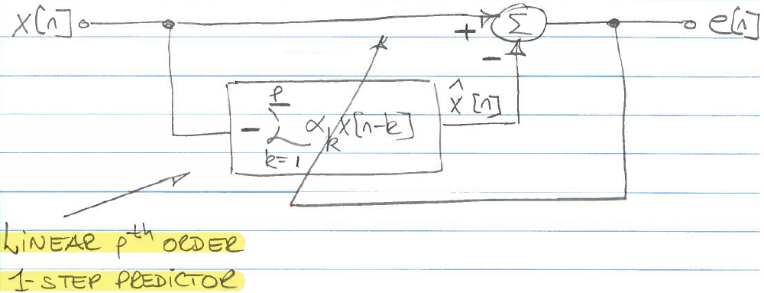 x[n] + Σ e[n]
-
x̂[n]
- Σ αk x[n-k]
p
k=1
LINEAR pth ORDER
1-STEP PREDICTOR